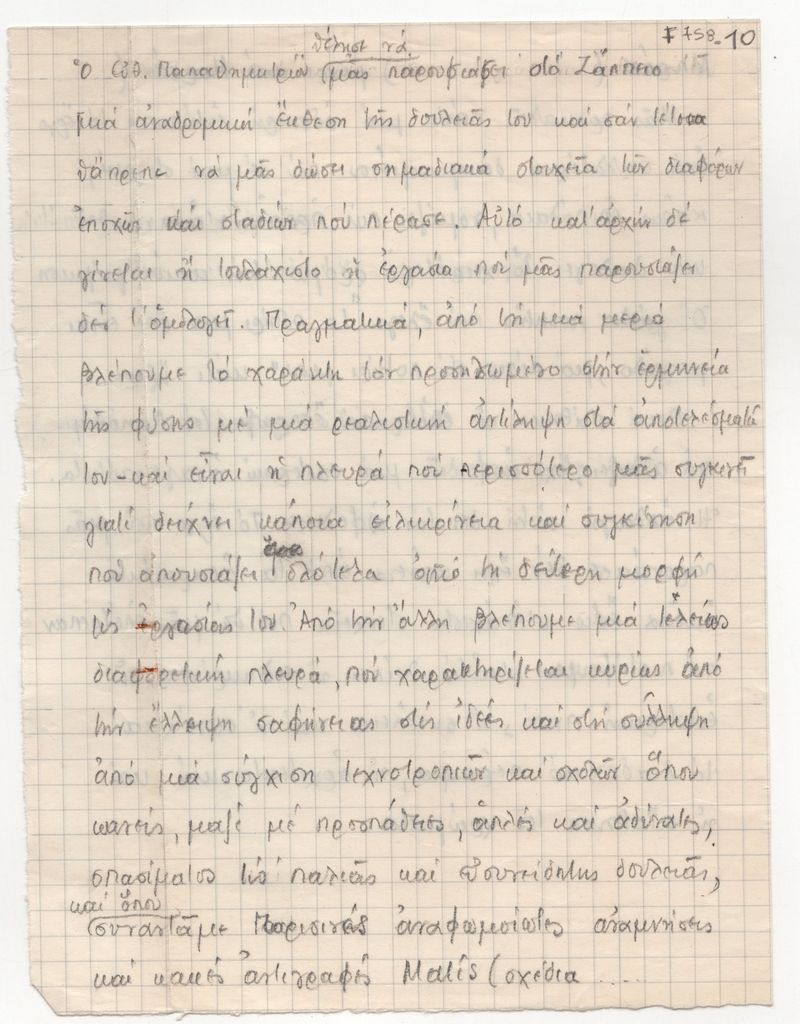 F758-10
θέλησε νά
Ὁ Εὐθ. Παπαδημητρίου μᾶς παρουσιάσει στό Ζάππειο
μιά ἀναδρομική ἔκθεση τῆς δουλειᾶς του καί σάν τέτοια
θἄπρεπε νά μᾶς δώσει σημαδιακά στοιχεῖα τῶν διαφόρων
ἐποχῶν καί σταδίων πού πέρασε. Αὐτό κατ' ἀρχήν δέ
γίνεται ἤ τουλάχιστο ἡ ἐργασία πού μᾶς παρουσιάζει
δέν τ' ὁμολογεῖ. Πραγματικά, ἀπό τή μιά μεριά
βλέπουμε τό χαράκτη τόν προσηλωμένο στήν ἑρμηνεία
τῆς φύσης μέ μιά ρεαλιστική ἀντίληψη στά ἀποτελέσματά
του - καί εἶναι ἡ πλευρά πού περισσότερο μᾶς συγκινεῖ
γιατί δείχνει κάποια εἰλικρίνεια καί συγκίνηση
πού ἀπουσιάζει ὁλότελα ἀπό τή δεύτερη μορφή
τῆς ἐργασίας του. Ἀπό τήν ἄλλη βλέπουμε μιά τελείως
διαφορετική πλευρά, πού χαρακτηρίζεται κυρίως ἀπό
τήν ἔλλειψη σαφήνειας στίς ἰδέες καί στή σύλληψη
ἀπό μιά σύγχιση τεχνοτροπιῶν καί σχολῶν ὅπου
κανείς, μαζί μέ προσπάθειες, ἁπλές καί ἀδύνατες,
σπασίματος τῆς παλιᾶς καί εὐσυνείδητης δουλειᾶς,
καί ὅπου
συναντᾶμε Παρισινές ἀναφωμοίωτες ἀναμνήσεις
καί κακές ἀντιγραφές Matis (σχέδια .....